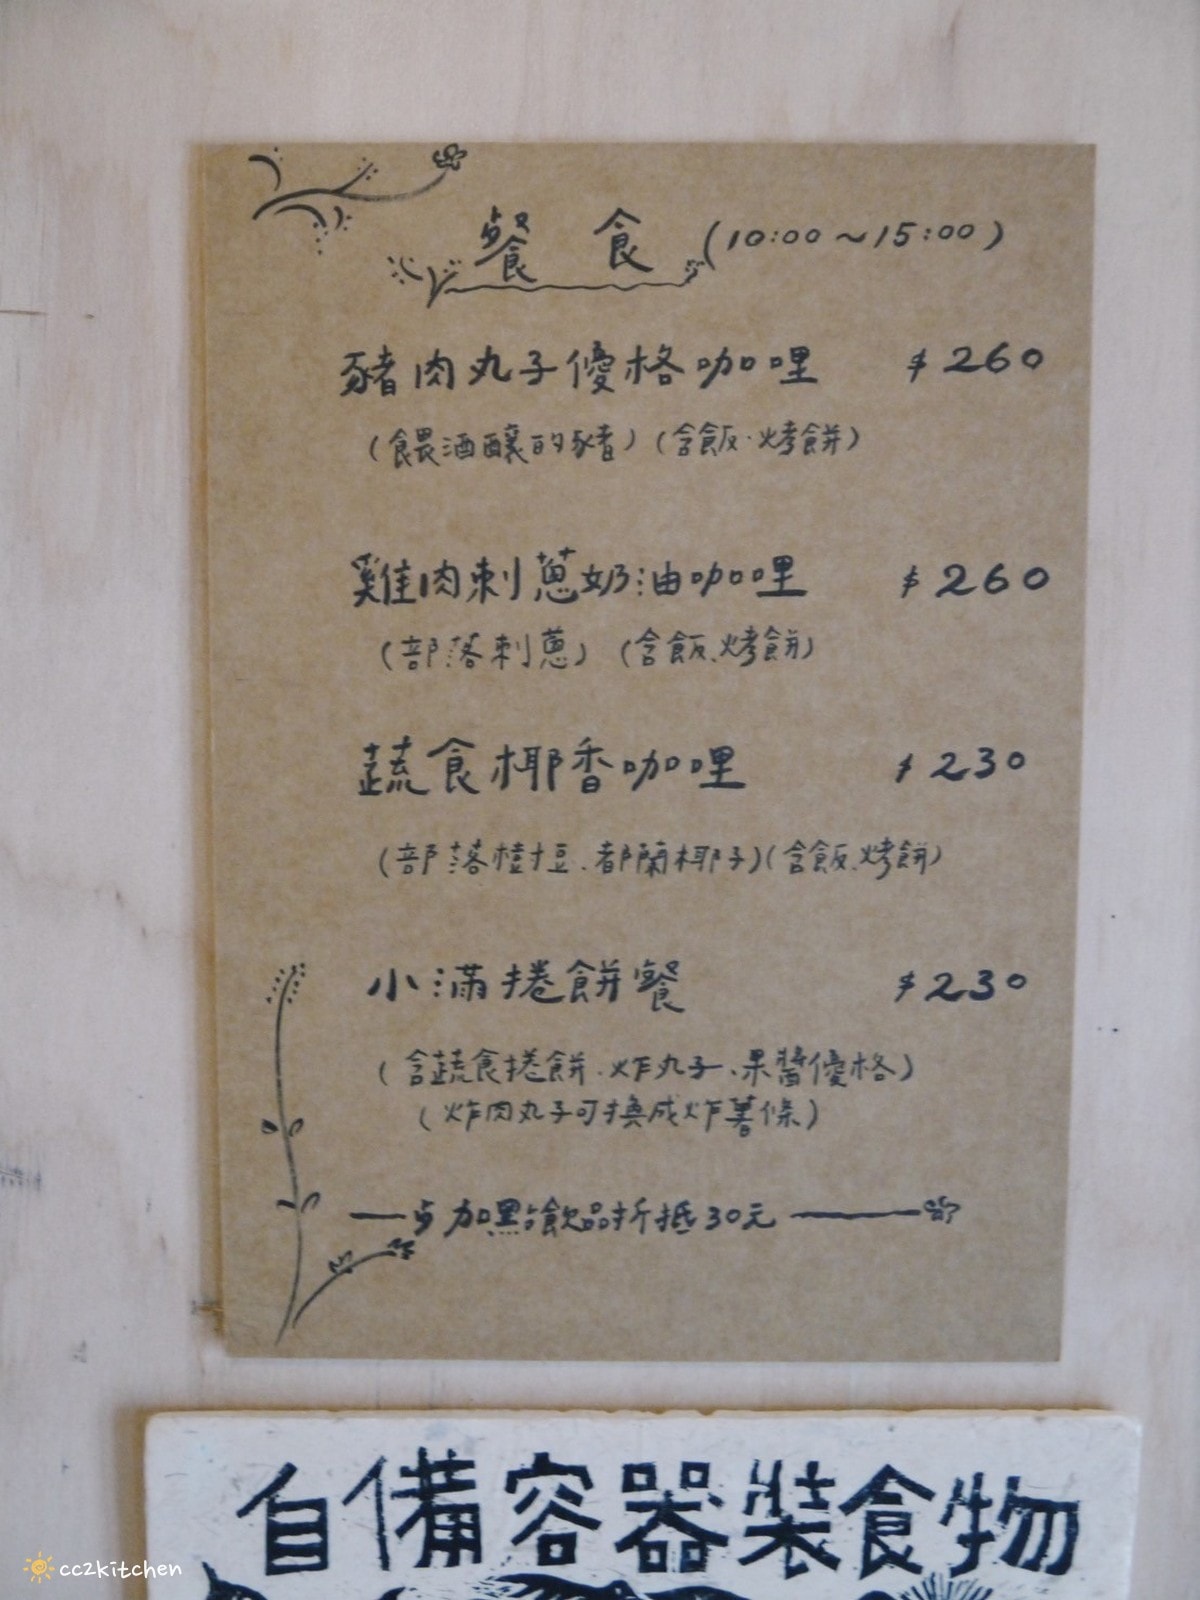 餐食 (10:00~15:00)
豬肉丸子優格咖哩 $260
(餵酒釀的豬) (含飯、烤餅)
雞肉刺蔥奶油咖哩 $260
(部落刺蔥) (含飯、烤餅)
蔬食椰香咖哩 $230
(部落樹豆、都蘭椰子)(含飯、烤餅)
小滿捲餅餐 $230
(含蔬食捲餅、炸丸子、果醬優格)
(炸肉丸子可換成炸薯條)
加點飲品折抵30元
自備容器裝食物
cc2kitchen